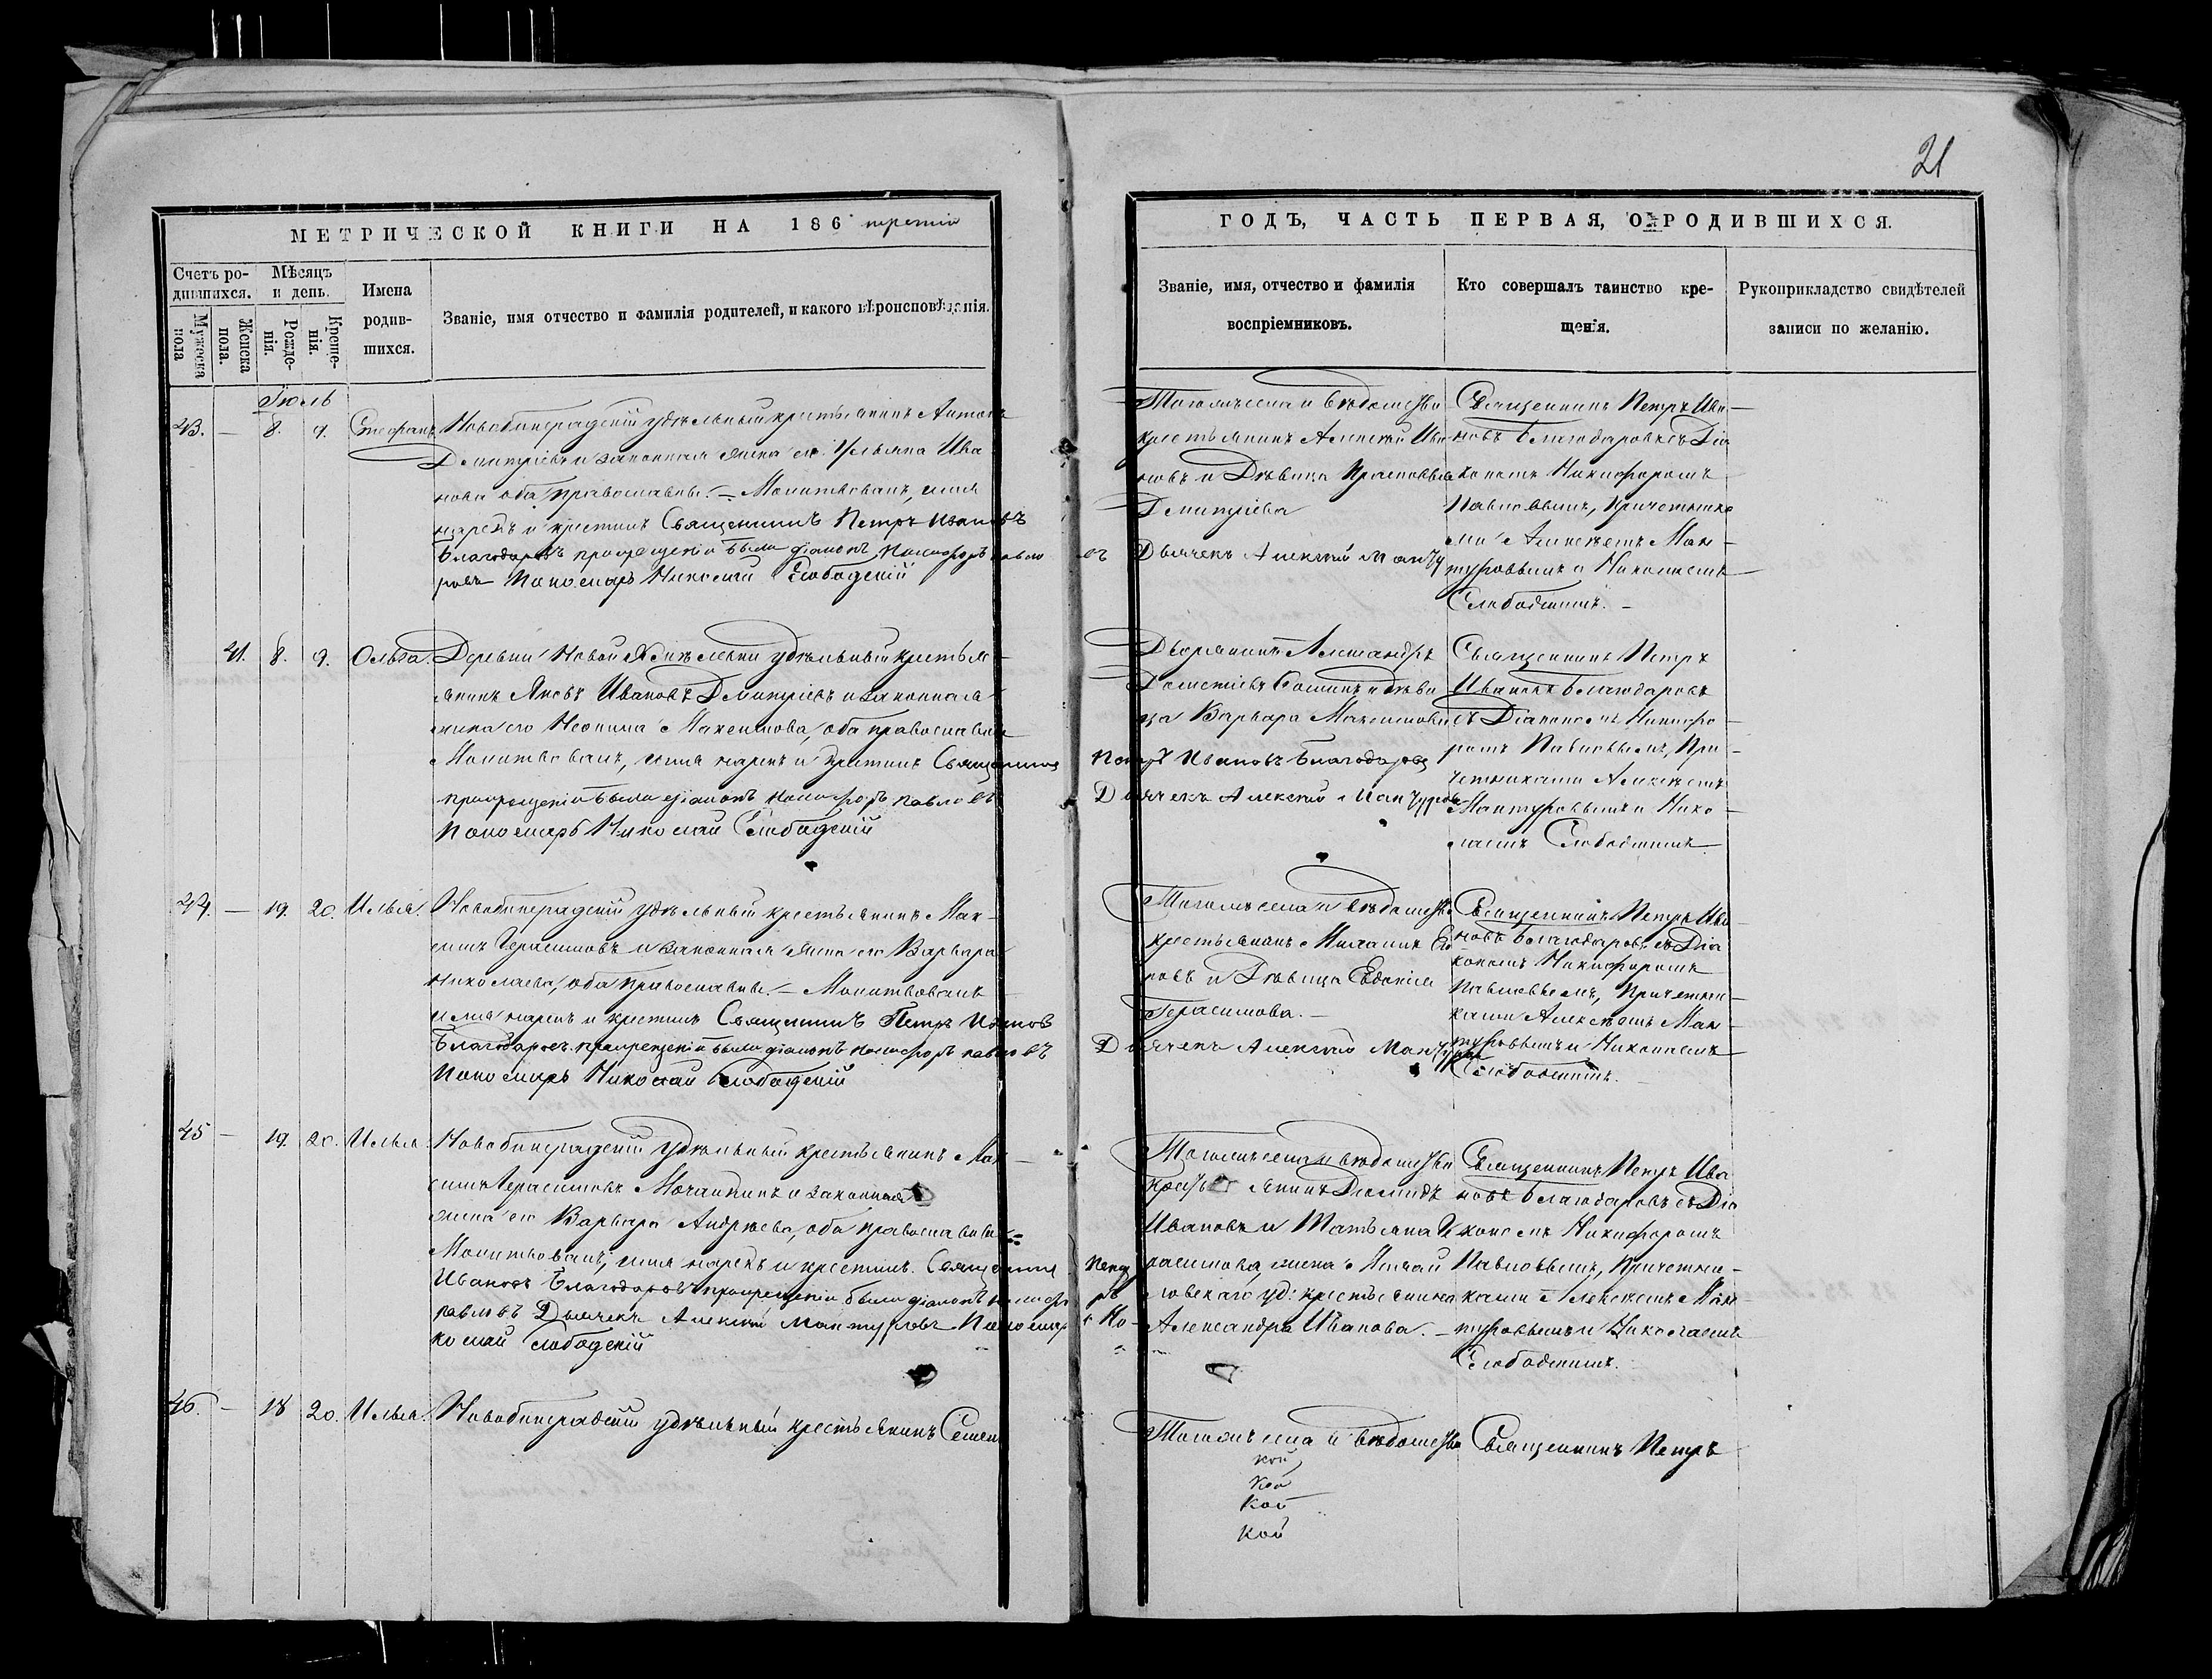 21
МЕТРИЧЕСКОЙ КНИГИ НА 186 третій
ГОДЪ, ЧАСТЬ ПЕРВАЯ, О РОДИВШИХСЯ.
Счетъ ро-
дившихся.
Мужеска
пола
Женска
пола.
Мѣсяцъ
и день.
Рожде-
нія.
Креще-
нія.
Имена
родив-
шихся.
Званіе, имя отчество и фамилія родителей, и какого вѣроисповѣданія.
Званіе, имя, отчество и фамилія
воспріемниковъ.
Кто совершалъ таинство кре-
щенія.
Рукоприкладство свидѣтелей
записи по желанію.
Іюль
43. — 8. 9. Стефанъ
удѣльный крестьянинъ Антонъ
Димитріевъ и законная жена его Ульяна Ива
нова оба православны. — Молитвовалъ, имя
нарекъ и крестилъ Священникъ Петръ Ивановъ
Благодаровъ при крещеніи были діаконъ Никифоръ Павло
Пономарь Николай Слободскій
Тогожъ села и вѣдомства
крестьянинъ Алексѣй Ива
новъ и Дѣвица Прасковья
Димитріева
Дьячекъ Алексѣй Манту
Священникъ Петръ Ива—
новъ Благодаровъ съ Діа
кономъ Никифоромъ
Павловымъ, Причетника
ми Алексѣемъ Ман—
туровымъ и Николаемъ
Слободскимъ. —
41. 8. 9. Ольга.
Деревни Новой удѣльный крестья—
янинъ Яковъ Ивановъ Димитріевъ и законная
жена его Неонила Максимова, оба православны
Молитвовалъ, имя нарекъ и крестилъ Священникъ
Петръ Ивановъ Благодаровъ
при крещеніи были діаконъ Никифоръ Павловъ
Дьячекъ Алексѣй Мантуровъ
Пономарь Николай Слободскій
Дворянинъ Александръ
и дѣви
ца Варвара Максимова
Священникъ Петръ
Ивановъ Благодаровъ
съ Діакономъ Никифо—
ромъ Павловымъ, При—
четниками Алексѣемъ
Мантуровымъ и Нико—
лаемъ Слободскимъ
44. — 19. 20. Илья.
удѣльный крестьянинъ Мак—
симъ Герасимовъ и законная жена его Варвара
Николаева, оба православны. — Молитвовалъ
имя нарекъ и крестилъ Священникъ Петръ Ивановъ
Благодаровъ при крещеніи были діаконъ Никифоръ Павловъ
Пономарь Николай Слободскій
Тогожъ села и вѣдомства
крестьянинъ
ровъ и Дѣвица Евдокія
Герасимова. —
Дьячекъ Алексѣй Мантуровъ
Священникъ Петръ Ива
новъ Благодаровъ съ Діа
кономъ Никифоромъ
Павловымъ, Причетни—
ками Алексѣемъ Ман—
туровымъ и Николаемъ
Слободскимъ.
45 — 19. 20. Илья
удѣльный крестьянинъ Мак—
симъ Герасимовъ и законная
жена его Варвара Андреева, оба православны
Молитвовалъ, имя нарекъ и крестилъ. Священникъ Петръ
Ивановъ Благодаровъ при крещеніи были діаконъ Никифоръ
Павловъ Дьячекъ Алексѣй Мантуровъ Пономарь Ни—
колай Слободскій
Тогожъ села и вѣдомства
крестьянинъ
Ивановъ и Татьяна Ге
расимова, жена
ловскаго уд: крестьянина
Александра Иванова. —
Священникъ Петръ Ива
новъ Благодаровъ съ Діа
кономъ Никифоромъ
Павловымъ, Причетни—
ками Алексѣемъ Ман
туровымъ и Николаемъ
Слободскимъ.
46. — 18 20. Илья.
удѣльный крестьянинъ Семенъ
Тогожъ села и вѣдомства
Священникъ Петръ
кой
кой
кой
кой